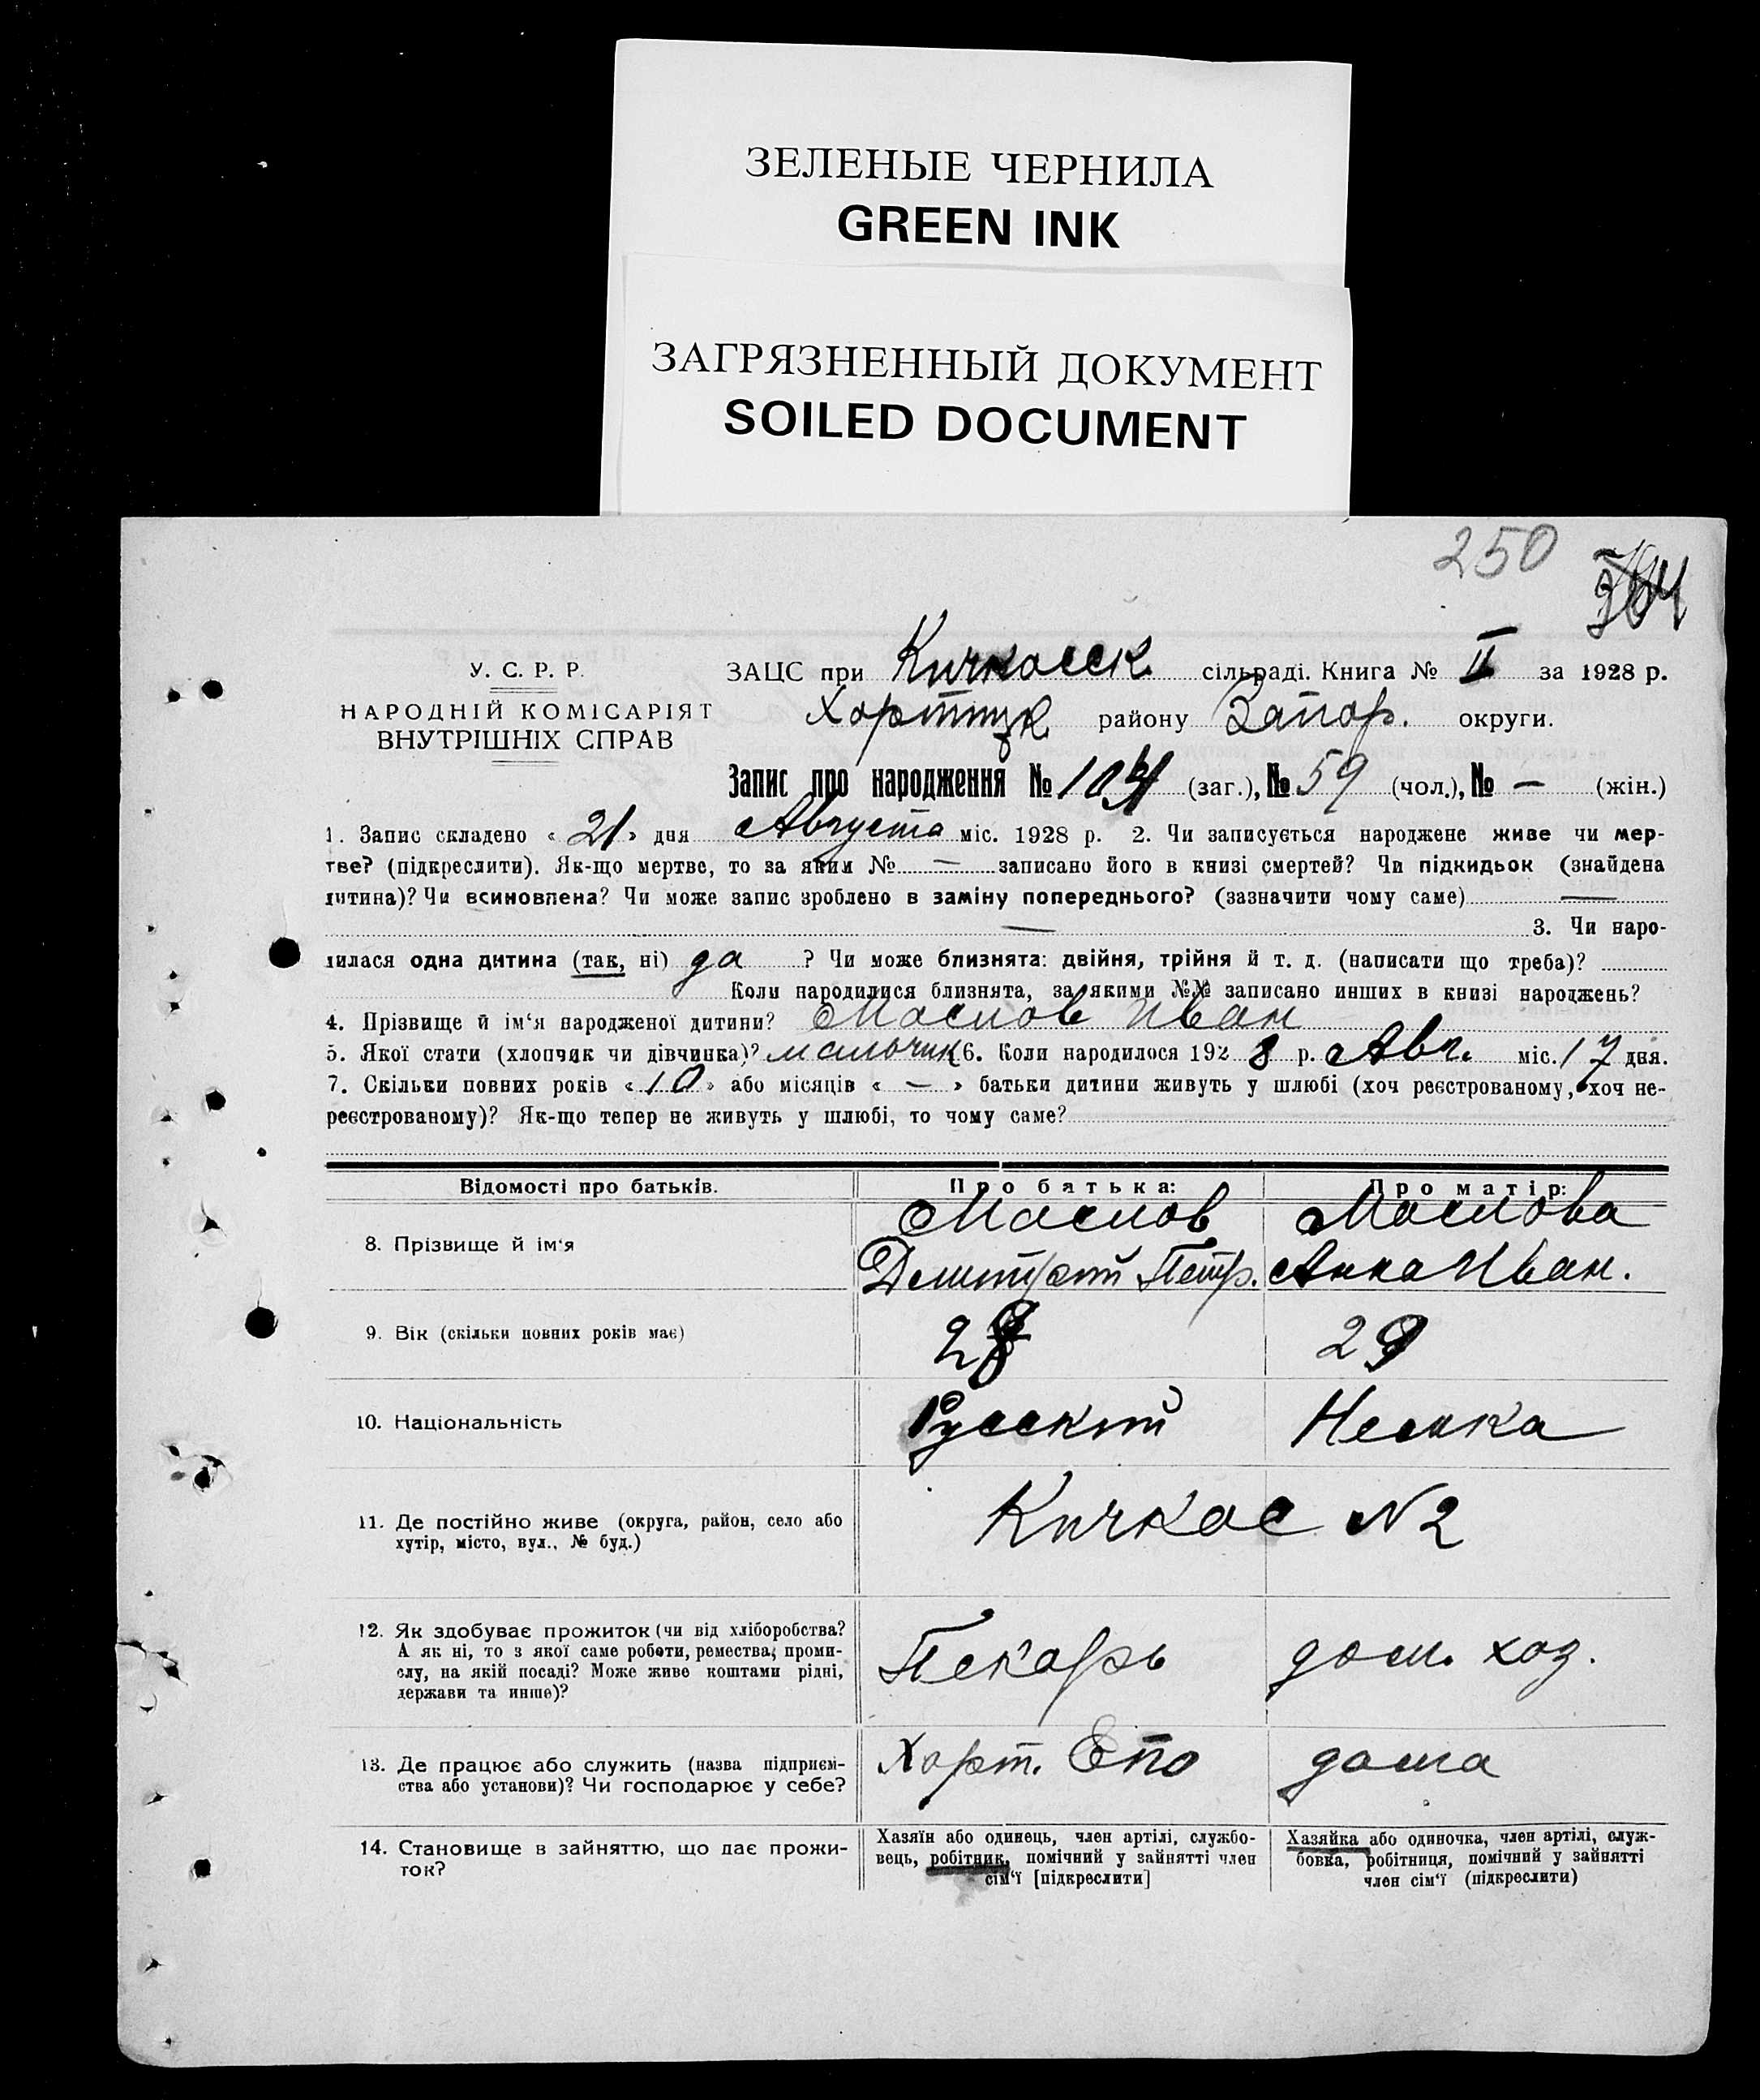 ЗЕЛЕНЫЕ ЧЕРНИЛА
GREEN INK
ЗАГРЯЗНЕННЫЙ ДОКУМЕНТ
SOILED DOCUMENT
250
У. С. Р. Р.
НАРОДНІЙ КОМІСАРІЯТ
ВНУТРІШНІХ СПРАВ
ЗАЦС при Кичкасск. сільраді. Книга № II за 1928 р.
Хортицк. району Запор. округи.
Запис про народження № 104 (заг.), № 59 (чол.), № — (жін.)
1. Запис складено « 21 » дня Августа міс. 1928 р. 2. Чи записується народжене живе чи мер-
тве? (підкреслити). Як-що мертве, то за яким № — записано його в книзі смертей? Чи підкидьок (знайдена
дитина)? Чи всиновлена? Чи може запис зроблено в заміну попереднього? (зазначити чому саме) —
— 3. Чи наро-
дилася одна дитина (так, ні) да ? Чи може близнята: двійня, трійня й т. д. (написати що треба)?
Коли народилися близнята, за якими №№ записано инших в книзі народжень?
4. Прізвище й ім'я народженої дитини? Маслов Иван
5. Якої стати (хлопчик чи дівчинка)? мальчик 6. Коли народилося 192 8 р. Авг. міс. 17 дня.
7. Скільки повних років « 10 » або місяців « — » батьки дитини живуть у шлюбі (хоч реєстрованому, хоч не-
реєстрованому)? Як-що тепер не живуть у шлюбі, то чому саме?
Відомості про батьків. Про батька: Про матір:
8. Прізвище й ім'я Маслов Дмитрий Петр. Маслова Анна Иван.
9. Вік (скільки повних років має) 29
10. Національність Русский Немка
11. Де постійно живе (округа, район, село або
хутір, місто, вул., № буд.) Кичкас N 2
12. Як здобуває прожиток (чи від хліборобства?
А як ні, то з якої саме роботи, ремества, проми-
слу, на якій посаді? Може живе коштами рідні,
держави та инше)? Пекарь дом. хоз.
13. Де працює або служить (назва підприєм-
ства або установи)? Чи господарює у себе? Хорт. Епо дома
14. Становище в зайняттю, що дає прожи-
ток?
Хазяїн або одинець, член артілі, службо-
вець, робітник, помічний у зайнятті член
сім'ї [підкреслити]
Хазяйка або одиночка, член артілі, служ-
бовка, робітниця, помічний у зайнятті
член сім'ї (підкреслити)